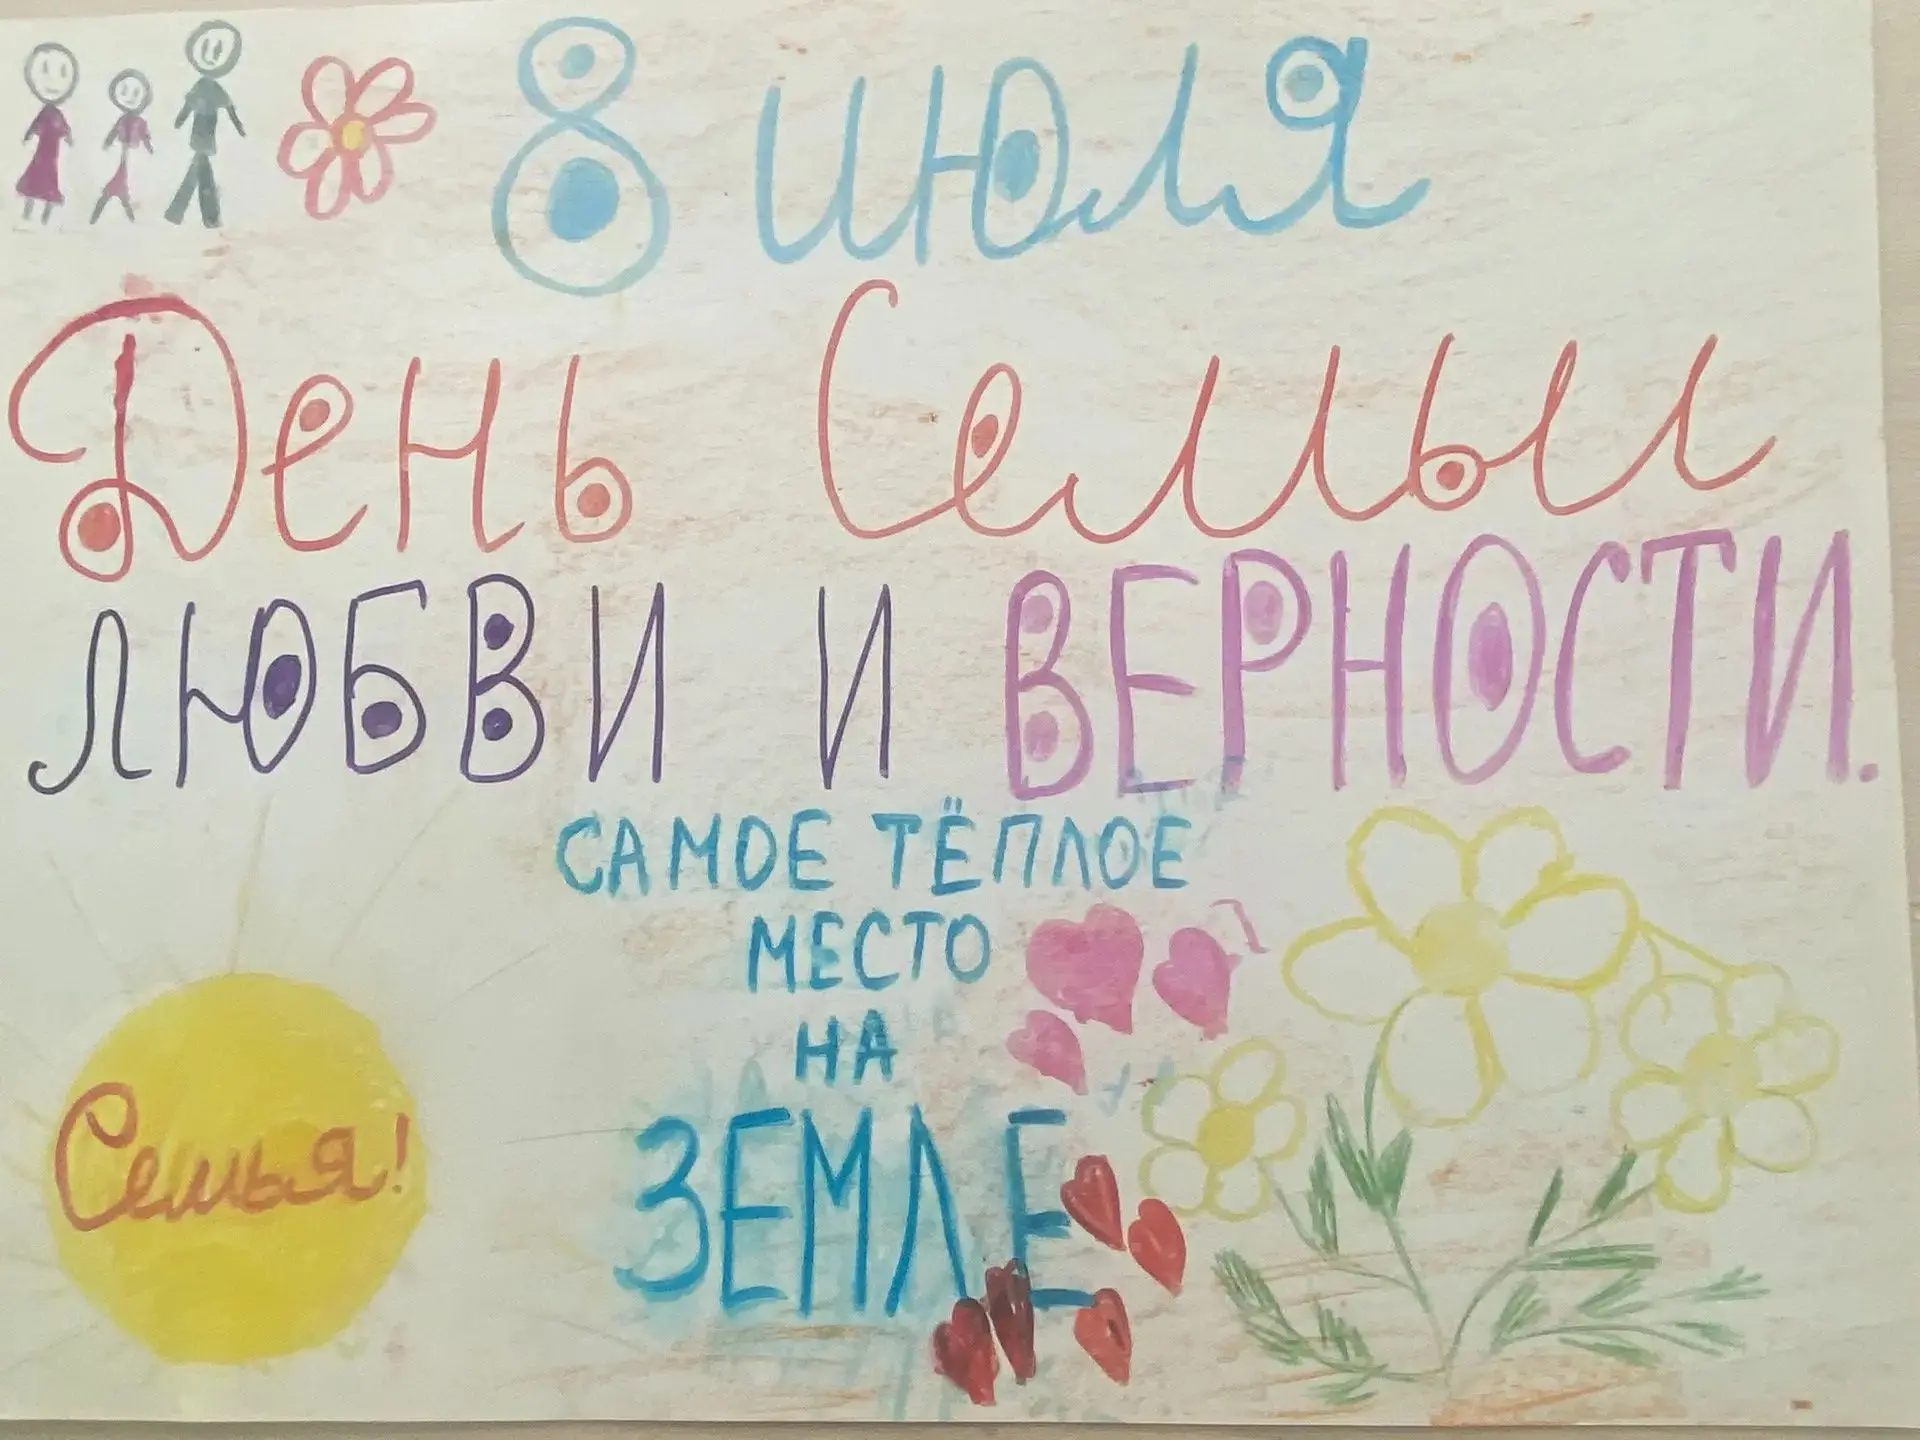 8 июля
День Семьи
ЛЮБВИ И ВЕРНОСТИ.
САМОЕ ТЁПЛОЕ
МЕСТО
НА
ЗЕМЛЕ
Семья!